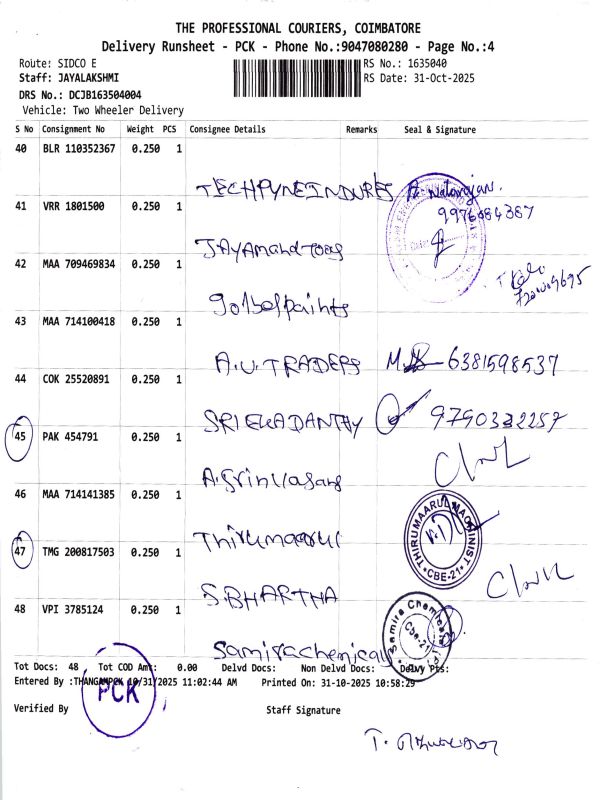 THE PROFESSIONAL COURIERS, COIMBATORE
Delivery Runsheet - PCK - Phone No.:9047080280 - Page No.:4
Route: SIDCO E
RS No.: 1635040
Staff: JAYALAKSHMI
RS Date: 31-Oct-2025
DRS No.: DCJB163504004
Vehicle: Two Wheeler Delivery
S No Consignment No Weight PCS Consignee Details Remarks Seal & Signature
40 BLR 110352367 0.250 1
TECHPYNEINDURES
9976484387
41 VRR 1801500 0.250 1
JayAmand Toos
42 MAA 709469834 0.250 1
golbalpaints
43 MAA 714100418 0.250 1
A.U.TRADERS 6381598537
44 COK 25520891 0.250 1
SRI EKADANTHY 9790332257
45 PAK 454791 0.250 1
A.Srinvasang
46 MAA 714141385 0.250 1
Thirumaarul
THIRUMAARUL MACHINIST
* CBE-21 *
47 TMG 200817503 0.250 1
S.BHARTHA
48 VPI 3785124 0.250 1
Samirachemicaly
Samira Chemicals
Cbe-21
Tot Docs: 48 Tot COD Amt: 0.00 Delvd Docs: Non Delvd Docs: Delvy Pts:
Entered By :THANGAMPCK 10/31/2025 11:02:44 AM Printed On: 31-10-2025 10:58:29
PCK
Verified By Staff Signature